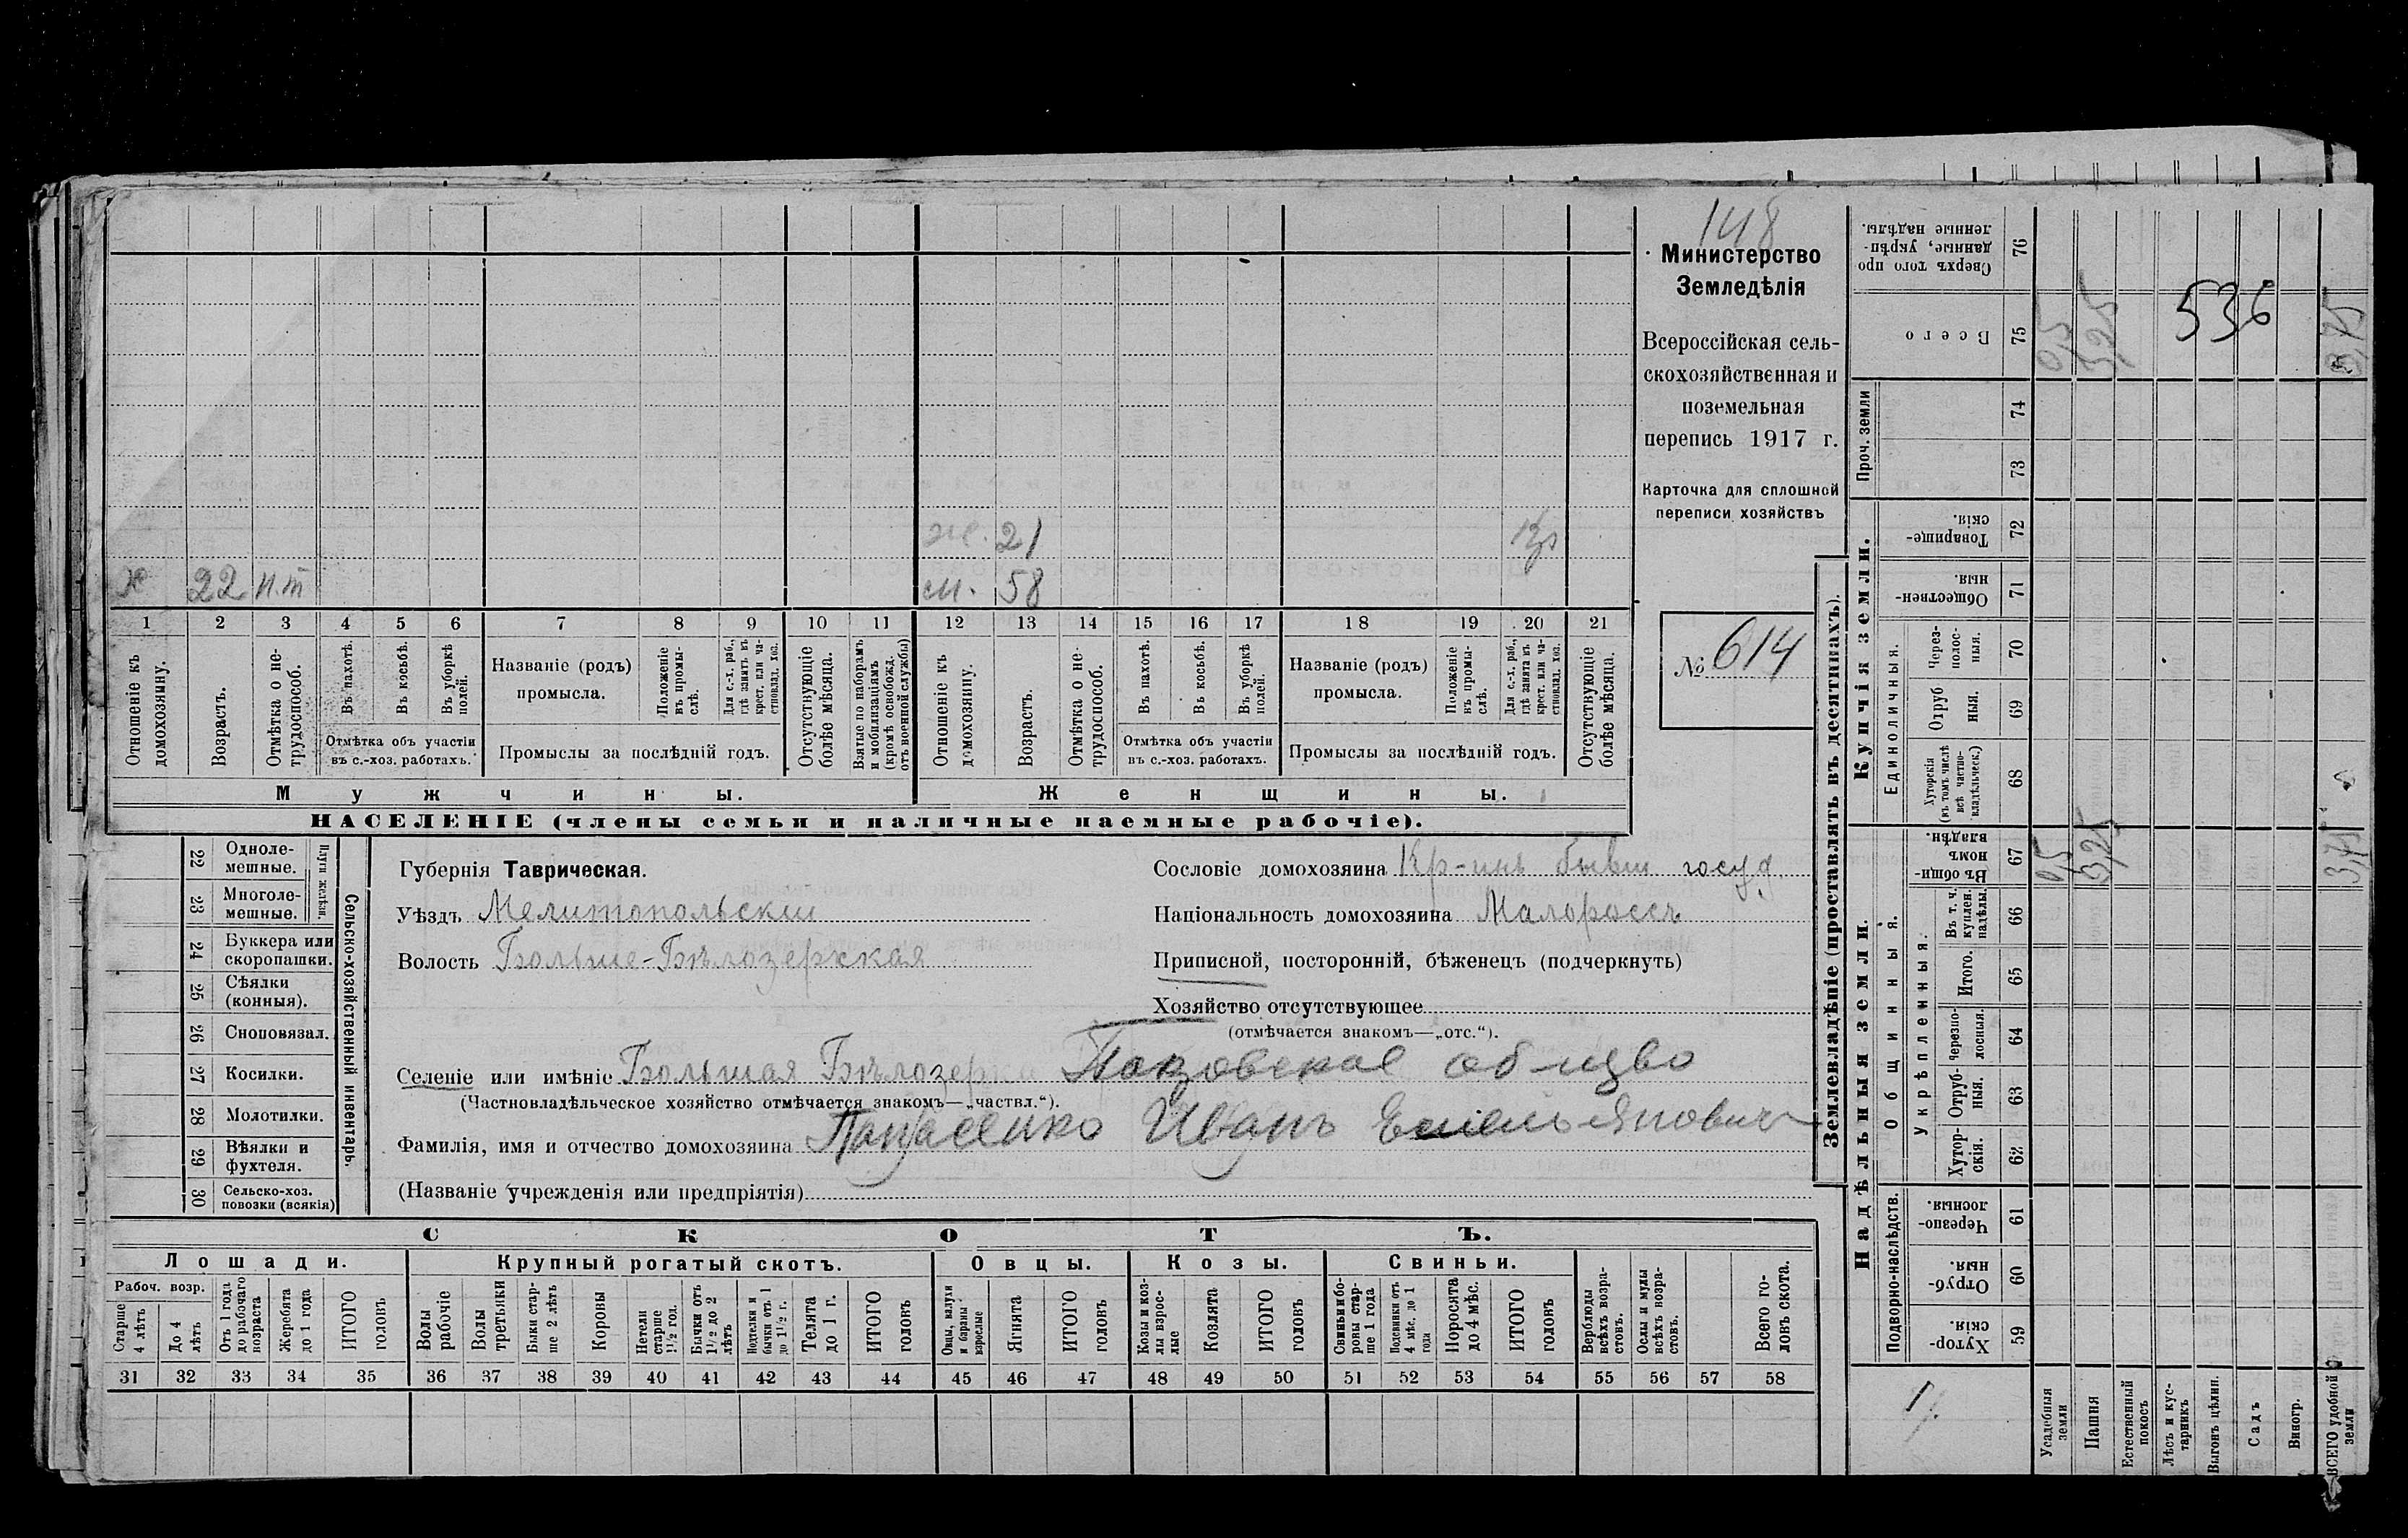 148
Министерство
Земледѣлія
Всероссійская сель-
скохозяйственная и
поземельная
перепись 1917 г.
Карточка для сплошной
переписи хозяйствъ
№ 614
ж. 21 Кр
х 22 н.т м. 58
1 2 3 4 5 6 7 8 9 10 11 12 13 14 15 16 17 18 19 20 21
Отношеніе къ домохозяину.
Возрастъ.
Отмѣтка о не-
трудоспособ.
Въ пахотѣ.
Въ косьбѣ.
Въ уборкѣ полей.
Отмѣтка объ участіи
въ с.-хоз. работахъ.
Названіе (родъ)
промысла.
Положеніе въ промы-
слѣ.
Для с.-х. раб., гдѣ занятъ въ крест. или ча-
стновлад. хоз.
Промыслы за послѣдній годъ.
Отсутствующіе болѣе мѣсяца.
Взятые по наборамъ и мобилизаціямъ (кромѣ освобожд. отъ военной службы)
Отношеніе къ домохозяину.
Возрастъ.
Отмѣтка о не-
трудоспособ.
Въ пахотѣ.
Въ косьбѣ.
Въ уборкѣ полей.
Отмѣтка объ участіи
въ с.-хоз. работахъ.
Названіе (родъ)
промысла.
Положеніе въ промы-
слѣ.
Для с.-х. раб., гдѣ занята въ крест. или ча-
стновлад. хоз.
Промыслы за послѣдній годъ.
Отсутствующіе болѣе мѣсяца.
Мужчины. Женщины.
НАСЕЛЕНІЕ (члены семьи и наличные наемные рабочіе).
22 Одноле-
мешные.
23 Многоле-
мешные.
Плуги желѣзн.
24 Буккера или
скоропашки.
25 Сѣялки
(конныя).
26 Сноповязал.
27 Косилки.
28 Молотилки.
29 Вѣялки и
фухтеля.
30 Сельско-хоз.
повозки (всякія)
Сельско-хозяйственный инвентарь.
Губернія Таврическая.
Уѣздъ Мелитопольский
Волость Больше-Бѣлозерская
Селеніе или имѣніе Большая Бѣлозерка Покровское общво
(Частновладѣльческое хозяйство отмѣчается знакомъ—„частвл.“).
Фамилія, имя и отчество домохозяина Иванъ Емельяновичъ
(Названіе учрежденія или предпріятія)
Сословіе домохозяина Кр-инъ бывш госуд.
Національность домохозяина Малороссъ
Приписной, посторонній, бѣженецъ (подчеркнуть)
Хозяйство отсутствующее
(отмѣчается знакомъ—„отс.“).
СКОТЪ.
Лошади. Крупный рогатый скотъ. Овцы. Козы. Свиньи.
Рабоч. возр.
Старше 4 лѣтъ
До 4 лѣтъ
Отъ 1 года до рабочаго возраста
Жеребята до 1 года
ИТОГО головъ
Волы рабочіе
Волы третьяки
Быки стар-
ше 2 лѣтъ
Коровы
Нетели старше 1½ гол.
Бычки отъ 1½ до 2 лѣтъ
Подтелки и бычки отъ 1 до 1½ г.
Телята до 1 г.
ИТОГО головъ
Овцы, валухи и бараны взрослые
Ягнята
ИТОГО головъ
Козы и коз-
лы взрос-
лые
Козлята
ИТОГО головъ
Свиньи и бо-
ровы стар-
ше 1 года
Подсвинки отъ 4 мѣс. до 1 года
Поросята до 4 мѣс.
ИТОГО головъ
Верблюды всѣхъ возра-
стовъ.
Ослы и мулы всѣхъ возра-
стовъ.
Всего го-
ловъ скота.
31 32 33 34 35 36 37 38 39 40 41 42 43 44 45 46 47 48 49 50 51 52 53 54 55 56 57 58
Землевладѣніе (проставлять въ десятинахъ).
Надѣльныя земли. Купчія земли. Проч. земли
Подворно-наслѣдств.
Общинныя.
Укрѣпленныя.
Единоличныя.
Хутор-
скія. 59
Отруб-
ныя. 60
Черезпо-
лосныя. 61
Хутор-
скія. 62
Отруб-
ныя. 63
Черезпо-
лосныя. 64
Итого. 65
Въ т. ч. куплен. надѣлы. 66
Въ общи-
номъ владѣн. 67 0,5 3,25 3,75
Хуторскія (въ томъ числѣ всѣ частно-
владѣльческ.) 68
Отруб
ныя. 69
Через-
полос-
ныя. 70
Обществен-
ныя. 71
Товарище-
скія. 72
73 74
Всего 75 0,5 3,25 3,75
536
Сверхъ того про
данные, укрѣп-
ленные надѣлы. 76
Усадебныя земли
Пашня
Естественный покосъ
Лѣсъ и кус-
тарникъ
Выгонъ цѣлин.
Садъ
Виногр.
ВСЕГО удобной земли